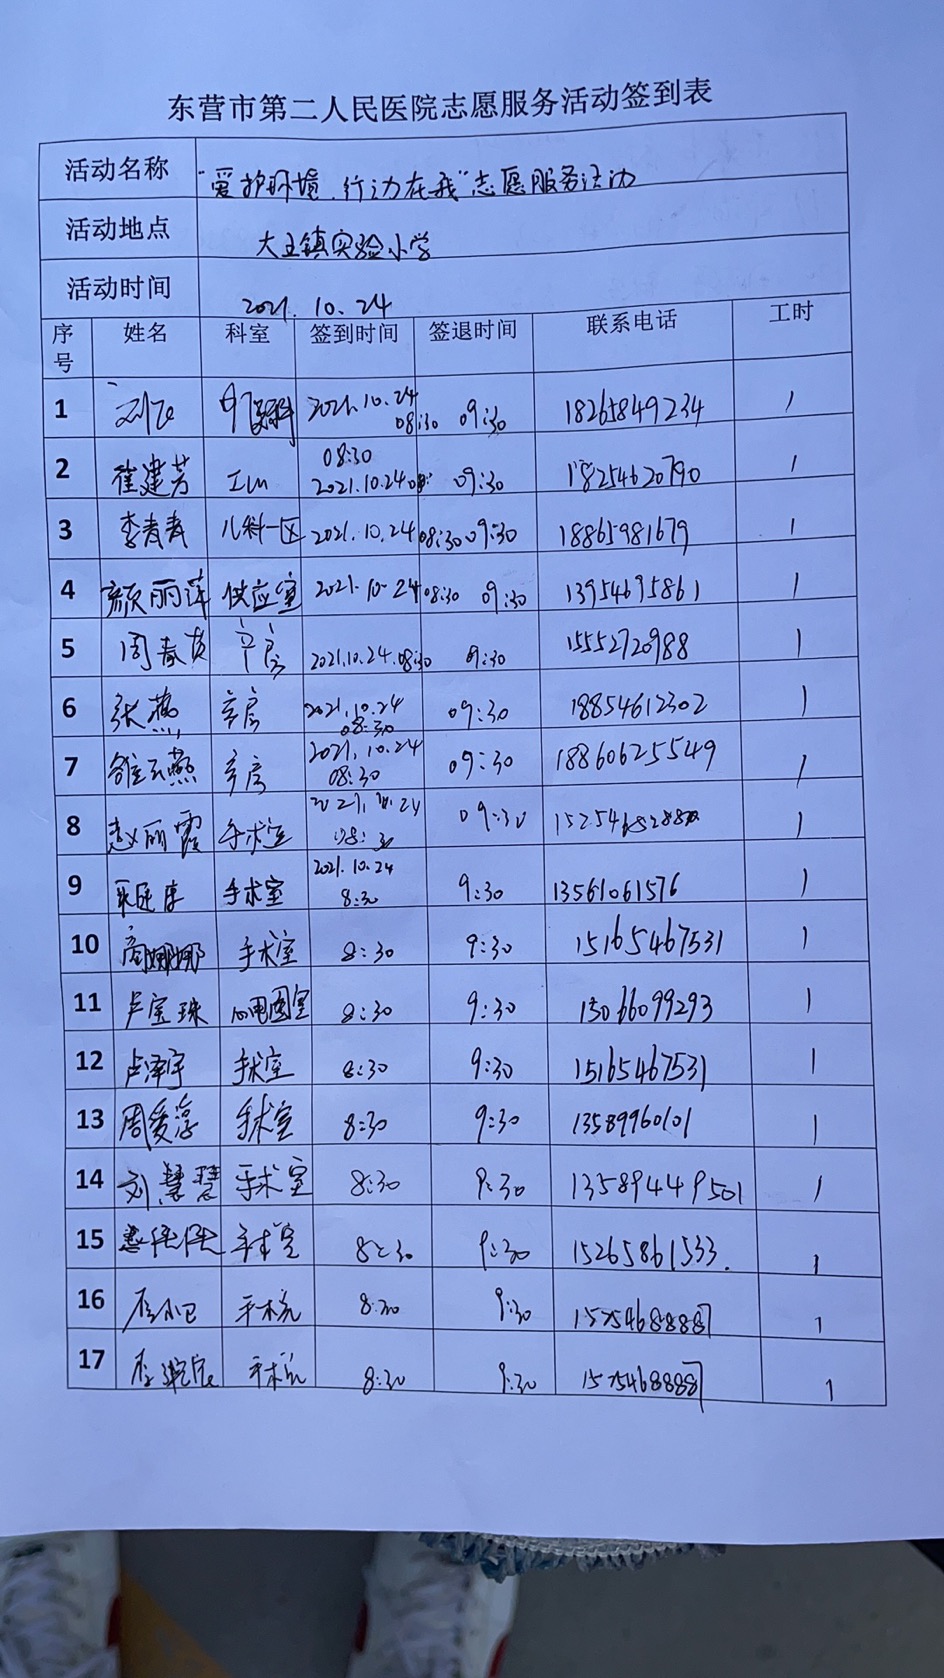 东营市第二人民医院志愿服务活动签到表
活动名称 "爱护环境.行动在我"志愿服务活动
活动地点 大王镇实验小学
活动时间 2021.10.24
序号 姓名 科室 签到时间 签退时间 联系电话 工时
1 2021.10.24 08:30 09:30 18265849234 1
2 崔建芳 08:30 2021.10.24 09:30 18254620790 1
3 李青青 儿科一区 2021.10.24 08:30 09:30 18865981679 1
4 颜丽萍 供应室 2021.10.24 08:30 09:30 13954695861 1
5 周春英 2021.10.24.08:30 9:30 15552720988 1
6 张燕 产房 2021.10.24 08:30 09:30 18854612302 1
7 产房 2021.10.24 08:30 09:30 18860625549 1
8 赵丽霞 手术室 09:30 1
9 手术室 2021.10.24 8:30 9:30 13561061576 1
10 手术室 8:30 9:30 15165467531 1
11 卢宝珠 心电图室 8:30 9:30 15066099293 1
12 卢泽宇 手术室 8:30 9:30 15165467531 1
13 周爱萍 手术室 8:30 9:30 13589960101 1
14 刘慧慧 手术室 8:30 9:30 13589449501 1
15 手术室 8:30 9:30 15265861533. 1
16 手术室 8:30 9:30 1
17 手术室 8:30 9:30 1